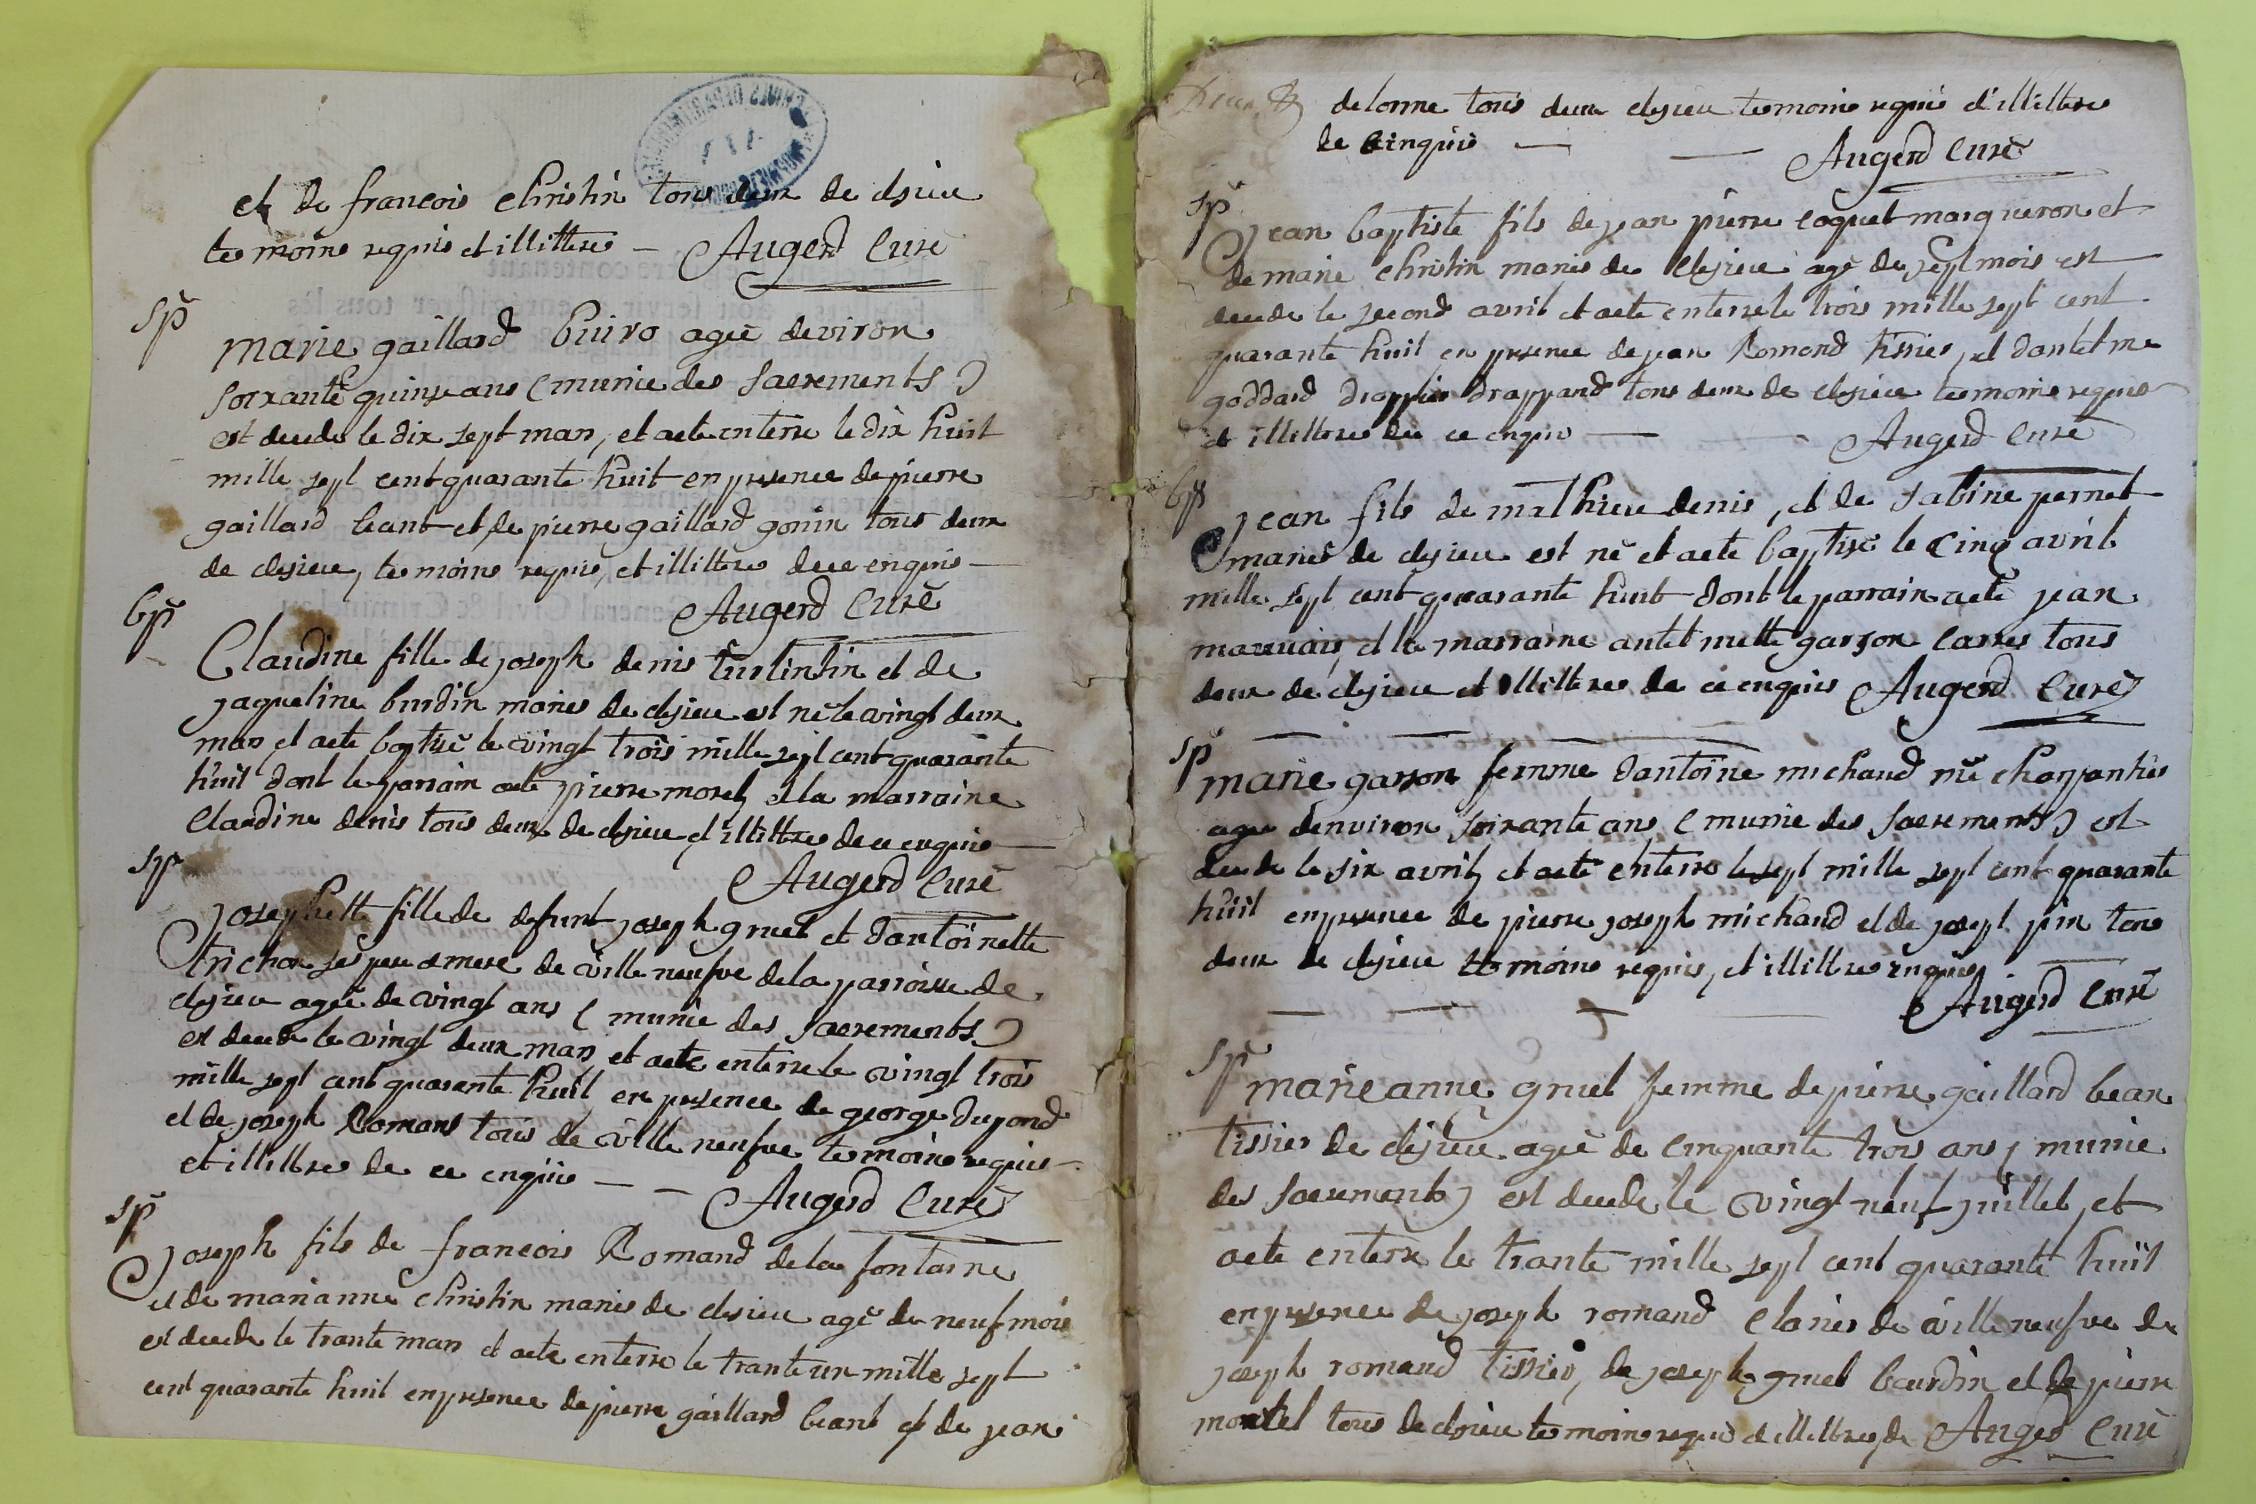 et de francois christin tous deux de elsieu
temoins requis et illittere — Augerd Curé
sp
marie gaillard buiro ageé deviron
soixante quinze ans (munie des sacrements)
est decede le dix sept mars, et aeté enterre le dix huit
mille sept cent quarante huit en presence de pierre
gaillard beant et de pierre gaillard gonin tous deux
de elesieu, temoins requis, et illittere de ce enquis —
Augerd Curé
bp
Claudine fille de joseph denis turlintin et de
jaqueline burdin mariés de elesieu est né le vingt deux
mars et aeté baptisé le vingt trois mille sept cent quarante
huit dont le parrain aeté pierre morel et la marraine
Claudine denis tous deux de elesieu et illittere de ce enquis —
Augerd Curé
sp
josephette fille de defunt joseph gruel et dantoinette
trichon ses pere et mere de ville neufve de la parroisse de
elesieu ageé de vingt ans (munie des sacrements)
est decede le vingt deux mars et aeté enterre le vingt trois
mille sept cent quarante huit en presence de george dupond
et de joseph Romans tous de ville neufve temoins requis —
et illittere de ce enquis — — Augerd Curé
sp
joseph fils de francois Romand de la fontaine
et de marianne christin mariés de elesieu agé de neuf mois
est decede le trante mars et aeté enterre le trante un mille sept
cent quarante huit en presence de pierre gaillard beant et de jean
delonne tous deux elesieu temoins requis et illittere
de ce enquis — — Augerd Curé
sp
jean baptiste fils de jean pierre coquet marqueron et
de marie christin mariés de elesieu agé de sept mois est
decede le second avril et aeté enterre le trois mille sept cent
quarante huit en presence de jean Romand tissier, et dantelme
goddard drappier drappand tous deux de elesieu temoins requis
et illittere de ce enquis — Augerd Curé
bp
jean fils de mathieu denis, et de sabine pernet
mariés de elesieu est né et aeté baptisé le cinq avril
mille sept cent quarante huit dont le parrain aeté jean
mauvais, et la marraine antelmette garson carrer tous
deux de elesieu et illittere de ce enquis Augerd Curé
sp
marie garson femme dantoine michaud née charpantier
ageé denviron soixante ans (munie des sacrements) est
decede le six avril, et aeté enterre le sept mille sept cent quarante
huit en presence de pierre joseph michaud et de josept pin tous
deux de elesieu temoins requis, et illittere enquis
Augerd Curé
sp
marie anne gruel femme de pierre gaillard bean
tissier de elesieu ageé de cinquante trois ans, munie
des sacrements) est decede le vingt neuf juillet, et
aeté enterré le trante mille sept cent quarante huit
en presence de joseph romand clarier de ville neufve de
joseph romand tissier, de joseph gruel bourdin et de pierre
montel tous de elesieu temoins requis et illittere, de Augerd Curé